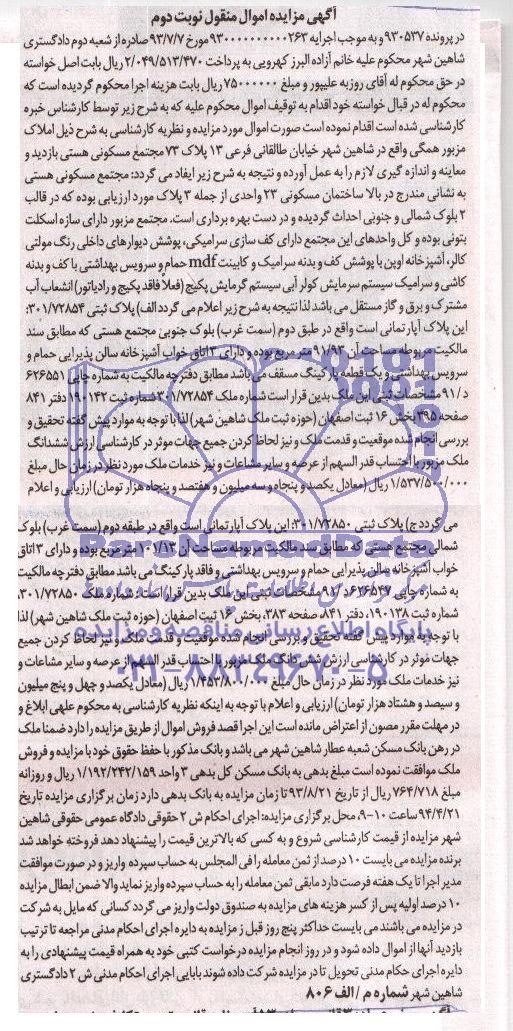 آگهی مزایده اموال منقول نوبت دوم
در پرونده ۹۳۰۵۳۷ و به موجب اجرایه ۹۳۰۰۰۰۰۰۰۰۰۰۲۶۳ مورخ ۹۳/۷/۷ صادره از شعبه دوم دادگستری
شاهین شهر محکوم علیه خانم آزاده البرز کهرویی به پرداخت ۲/۰۴۹/۵۱۳/۴۷۰ ریال بابت اصل خواسته
در حق محکوم له آقای روزبه علیپور و مبلغ ۷۵۰۰۰۰۰۰ ریال بابت هزینه اجرا محکوم گردیده است که
محکوم له در قبال خواسته خود اقدام به توقیف اموال محکوم علیه که به شرح زیر توسط کارشناس خبره
کارشناسی شده است اقدام نموده است صورت اموال مورد مزایده و نظریه کارشناسی به شرح ذیل املاک
مزبور همگی واقع در شاهین شهر خیابان طالقانی فرعی ۱۳ پلاک ۷۳ مجتمع مسکونی هستی بازدید و
معاینه و اندازه گیری لازم را به عمل آورده و نتیجه به شرح زیر ایفاد می گردد: مجتمع مسکونی هستی
به نشانی مندرج در بالا ساختمان مسکونی ۲۳ واحدی از جمله ۳ پلاک مورد ارزیابی بوده که در قالب
۲ بلوک شمالی و جنوبی احداث گردیده و در دست بهره برداری است. مجتمع مزبور دارای سازه اسکلت
بتونی بوده و کل واحدهای این مجتمع دارای کف سازی سرامیکی، پوشش دیوارهای داخلی رنگ مولتی
کالر، آشپزخانه اوپن با پوشش کف و بدنه سرامیک و کابینت mdf حمام و سرویس بهداشتی با کف و بدنه
کاشی و سرامیک سیستم سرمایش کولر آبی سیستم گرمایش پکیج (فعلا فاقد پکیج و رادیاتور) انشعاب آب
مشترک و برق و گاز مستقل می باشد لذا نتیجه به شرح زیر اعلام می گردد الف) پلاک ثبتی ۳۰۱/۷۲۸۵۴:
این پلاک آپارتمانی است واقع در طبقه دوم (سمت غرب) بلوک جنوبی مجتمع هستی که مطابق سند
مالکیت مربوطه مساحت آن ۹۱/۹۳ متر مربع بوده و دارای ۳ اتاق خواب آشپزخانه سالن پذیرایی حمام و
سرویس بهداشتی و یک قطعه پارکینگ مسقف می باشد مطابق دفترچه مالکیت به شماره چاپی ۶۲۶۵۵۱
د/۹۱ مشخصات ثبتی این ملک بدین قرار است شماره ملک ۳۰۱/۷۲۸۵۴ شماره ثبت ۱۹۰۱۴۲ دفتر ۸۴۱
صفحه ۳۹۵ بخش ۱۶ ثبت اصفهان (حوزه ثبت ملک شاهین شهر) لذا با توجه به موارد پیش گفته تحقیق و
بررسی انجام شده موقعیت و قدمت ملک و نیز لحاظ کردن جمیع جهات موثر در کارشناسی ارزش ششدانگ
ملک مزبور با احتساب قدر السهم از عرصه و سایر مشاعات و نیز خدمات ملک مورد نظر در زمان حال مبلغ
۱/۵۳۷/۵۰۰/۰۰۰ ریال (معادل یکصد و پنجاه و سه میلیون و هفتصد و پنجاه هزار تومان) ارزیابی و اعلام
می گردد ج) پلاک ثبتی ۳۰۱/۷۲۸۵۰: این پلاک آپارتمانی است واقع در طبقه دوم (سمت غرب) بلوک
شمالی مجتمع هستی که مطابق سند مالکیت مربوطه مساحت آن ۱۰۱/۱۳ متر مربع بوده و دارای ۳ اتاق
خواب آشپزخانه سالن پذیرایی حمام و سرویس بهداشتی و فاقد پارکینگ می باشد مطابق دفترچه مالکیت
به شماره چاپی ۶۲۶۵۴۷ د/۹۱ مشخصات ثبتی این ملک بدین قرار است: شماره ملک ۳۰۱/۷۲۸۵۰
شماره ثبت ۱۹۰۱۳۸، دفتر ۸۴۱ صفحه ۳۸۳، بخش ۱۶ ثبت اصفهان (حوزه ثبت ملک شاهین شهر) لذا
با توجه به موارد پیش گفته تحقیق و بررسی انجام شده موقعیت و قدمت ملک و نیز لحاظ کردن جمیع
جهات موثر در کارشناسی ارزش شش دانگ ملک مزبور با احتساب قدر السهم از عرصه و سایر مشاعات و
نیز خدمات ملک مورد نظر در زمان حال مبلغ ۱/۴۵۳/۸۰۰/۰۰۰ ریال (معادل یکصد و چهل و پنج میلیون
و سیصد و هشتاد هزار تومان) ارزیابی و اعلام با توجه به اینکه نظریه کارشناسی به محکوم علهی ابلاغ و
در مهلت مقرر مصون از اعتراض مانده است این اجرا قصد فروش اموال از طریق مزایده را دارد ضمنا ملک
در رهن بانک مسکن شعبه عطار شاهین شهر می باشد و بانک مذکور با حفظ حقوق خود با مزایده و فروش
ملک موافقت نموده است مبلغ بدهی به بانک مسکن کل بدهی ۳ واحد ۱/۱۹۲/۲۴۲/۱۵۹ ریال و روزانه
مبلغ ۷۶۴/۷۱۸ ریال از تاریخ ۹۳/۸/۲۱ تا زمان مزایده به بانک بدهی دارد زمان برگزاری مزایده تاریخ
۹۴/۴/۲۱ ساعت ۱۰-۹، محل برگزاری مزایده: اجرای احکام ش ۲ حقوقی دادگاه عمومی حقوقی شاهین
شهر مزایده از قیمت کارشناسی شروع و به کسی که بالاترین قیمت را پیشنهاد دهد فروخته خواهد شد
برنده مزایده می بایست ۱۰ درصد از ثمن معامله را فی المجلس به حساب سپرده واریز و در صورت موافقت
مدیر اجرا تا یک هفته فرصت دارد مابقی ثمن معامله را به حساب سپرده واریز نماید والا ضمن ابطال مزایده
۱۰ درصد اولیه پس از کسر هزینه های مزایده به صندوق دولت واریز می گردد کسانی که مایل به شرکت
در مزایده می باشند می بایست حداکثر پنج روز قبل ز مزایده به دایره اجرای احکام مدنی مراجعه تا ترتیب
بازدید آنها از اموال داده شود و در روز انجام مزایده درخواست کتبی خود به همراه قیمت پیشنهادی را به
دایره اجرای حکام مدنی تحویل تا در مزایده شرکت داده شوند بابایی اجرای احکام مدنی ش ۲ دادگستری
شاهین شهر شماره م / الف ۸۰۶
ParsNamadData
پایگاه اطلاع رسانی مناقصه و مزایده
۰۲۱-۸۸۳۴۹۶۷۰-۵